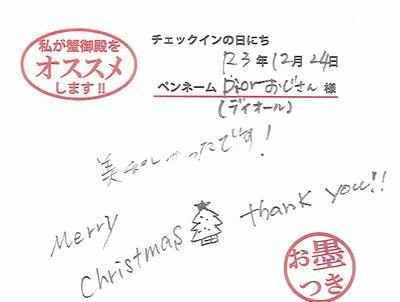 私が蟹御殿を
オススメ
します!!
チェックインの日にち
'23年12月24日
ペンネーム Diorおじさん 様
(ディオール)
美味しかったです!
Merry
Christmas thank you!!
お墨
つき